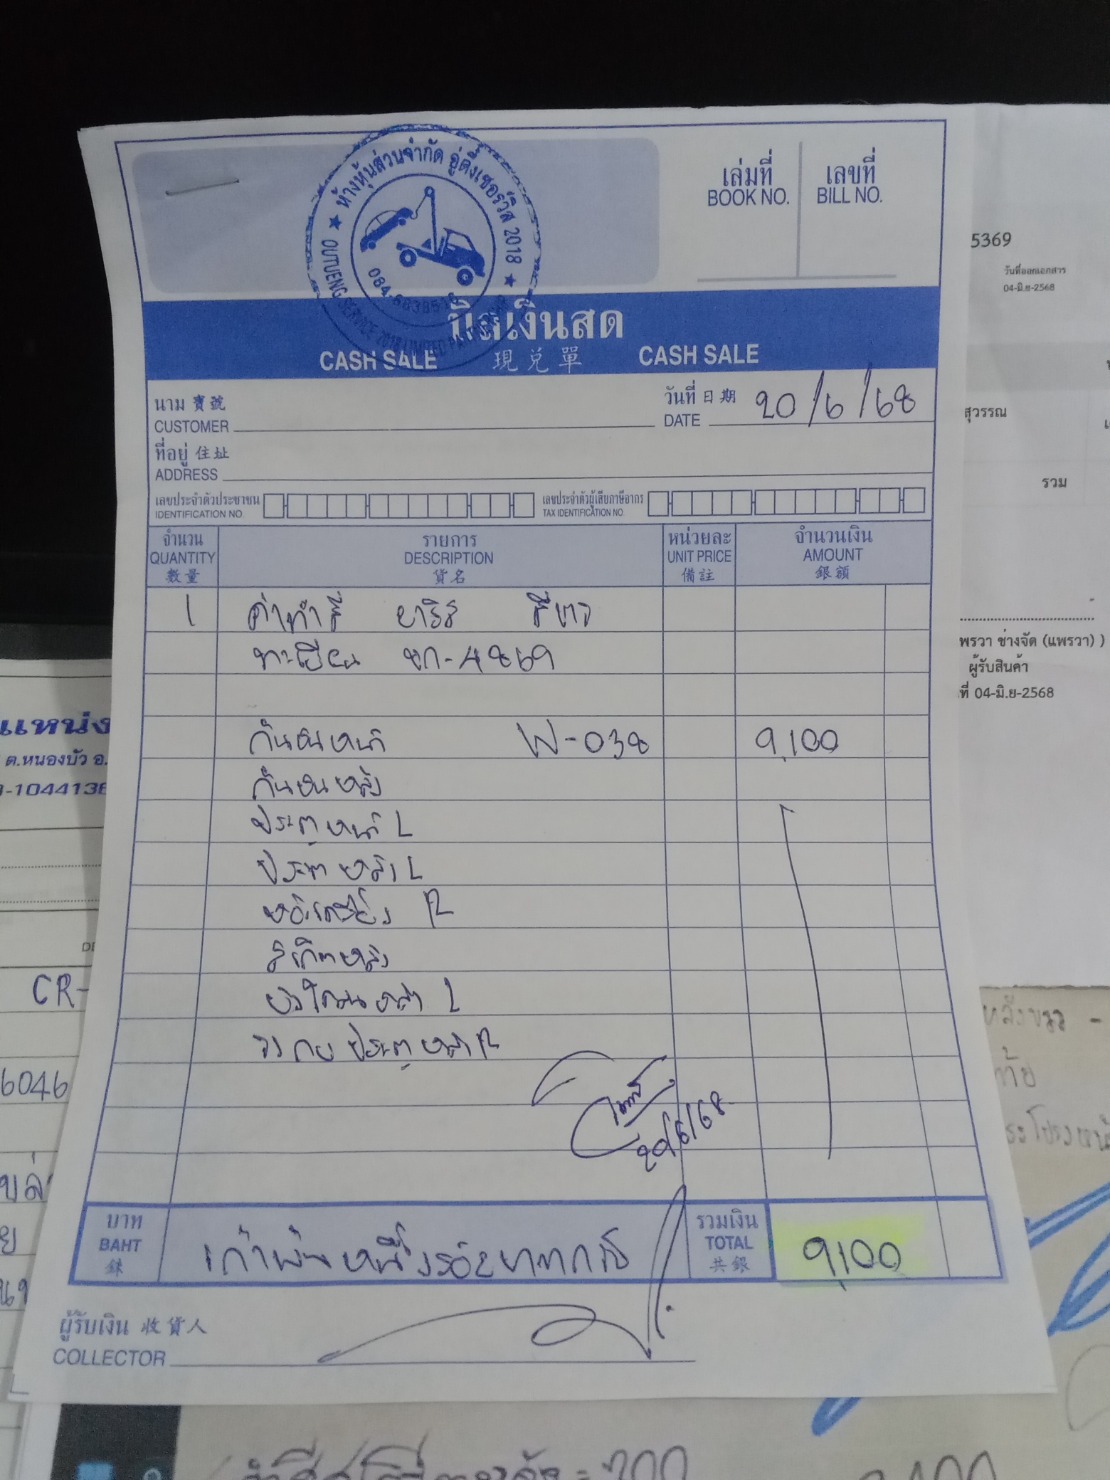 ห้างหุ้นส่วนจำกัด อู่ตึ๋งเซอร์วิส 2018
OUTUENG SERVICE 2018 LIMITED
เล่มที่
BOOK NO.
เลขที่
BILL NO.
บิลเงินสด
CASH SALE 現兌單 CASH SALE
นาม 寶號
CUSTOMER
วันที่ 日期 20/6/68
DATE
ที่อยู่ 住址
ADDRESS
เลขประจำตัวประชาชน
IDENTIFICATION NO.
เลขประจำตัวผู้เสียภาษีอากร
TAX IDENTIFICATION NO.
จำนวน รายการ หน่วยละ จำนวนเงิน
QUANTITY DESCRIPTION UNIT PRICE AMOUNT
數量 貨名 備註 銀額
1 ค่าทำสี ยาริส สีขาว
ทะเบียน ขก-4869
กันชนหน้า W-038 9,100
กันชนหลัง
ประตูหน้า L
ประตูหลัง L
R
สเกิตหลัง
บังโคลนหลัง L
ประตูหลัง R
20/6/68
บาท
BAHT
銖
เก้าพันหนึ่งร้อยบาทถ้วน
รวมเงิน
TOTAL
共銀
9,100
ผู้รับเงิน 收貨人
COLLECTOR
5369
วันที่ออกเอกสาร
04-มิ.ย-2568
สุวรรณ
รวม
พรวา ช่างจัด (แพรวา) )
ผู้รับสินค้า
ที่ 04-มิ.ย-2568
แหน่ง
ต.หนองบัว อ.
-104413
CR-
6046